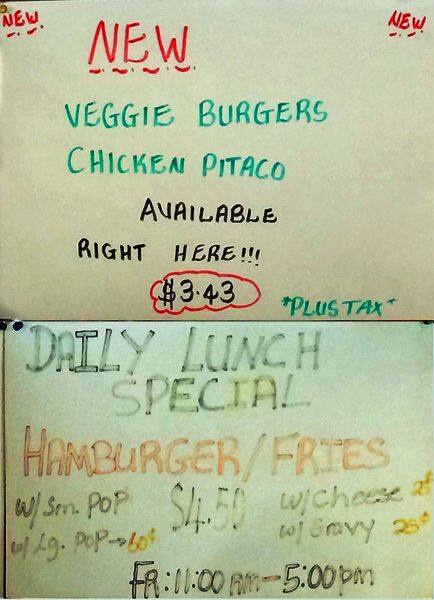 NEW
NEW
NEW
VEGGIE BURGERS
CHICKEN PITACO
AVAILABLE
RIGHT HERE!!!
$3.43
*PLUS TAX*
DAILY LUNCH
SPECIAL
HAMBURGER/FRIES
w/Sm. POP $4.50 w/Cheese 25¢
w/Lg. POP→60¢ w/Gravy 25¢
FR:11:00am-5:00pm